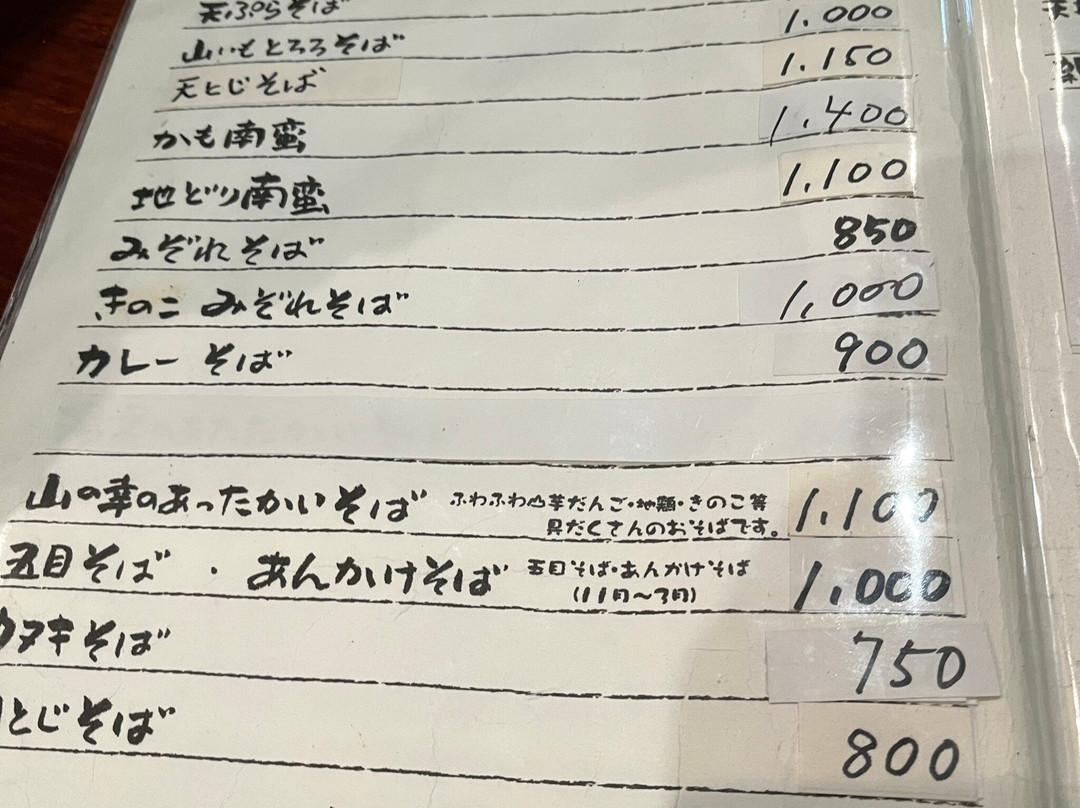 天ぷらそば
山いもとろろそば 1.000
天とじそば 1.150
かも南蛮 1.400
地どり南蛮 1.100
みぞれそば 850
きのこ みぞれそば 1,000
カレーそば 900
山の幸のあったかいそば ふわふわ山芋だんご・地鶏・きのこ等 1.100
具だくさんのおそばです。
五目そば ・ あんかけそば 五目そば・あんかけそば 1.000
(11月〜3月)
タヌキそば 750
とじそば 800